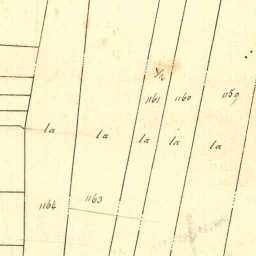 1161 1160 1159
la la la la la
1164 1163